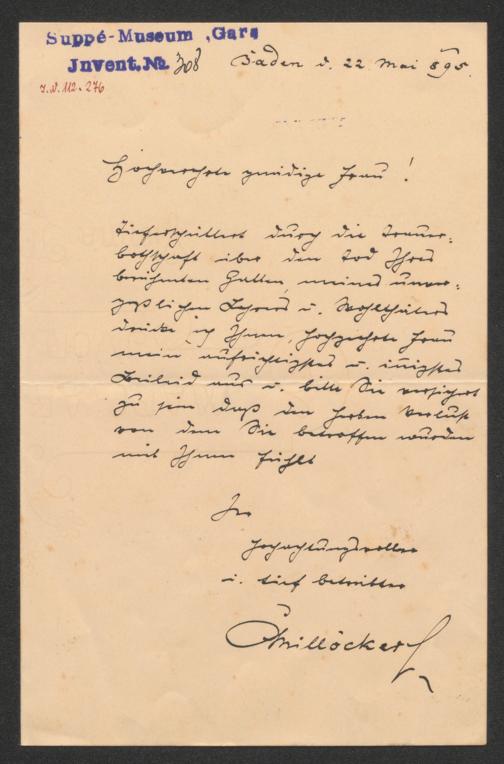 Suppé-Museum, Gars
Invent. № 308
I.N. 112.276
Baden d. 22 Mai 895.
Hochverehrte gnädige Frau!
Tieferschüttert durch die Trauer-
bothschaft über den Tod Ihres
berühmten Gatten, meines unver-
geßlichen Lehrers u. Wohlthäters
drücke ich Ihnen, hochgeehrte Frau
mein aufrichtigstes u. innigstes
Beileid aus u. bitte Sie versichert
zu sein daß den herben Verlust
von dem Sie betroffen wurden
mit Ihnen fühlt
Ihr
hochachtungsvoller
u. tief betrübter
CMillöcker